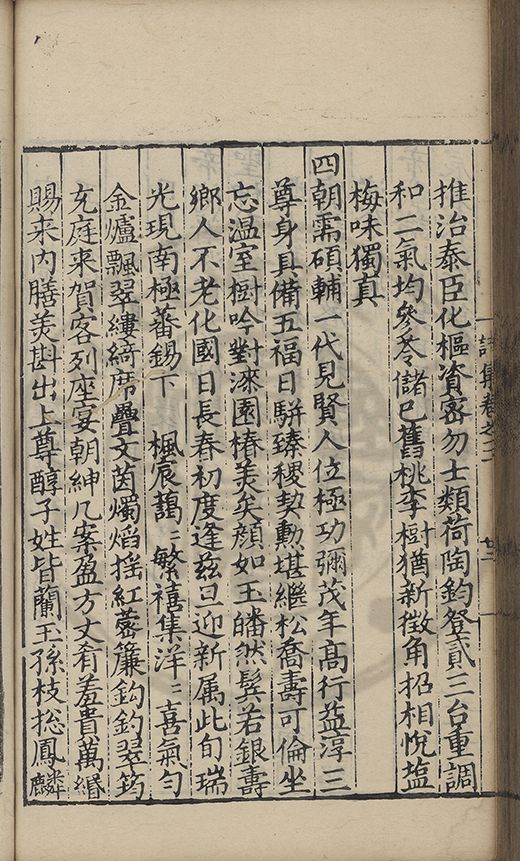 詩集卷之二 廿二
推治泰臣化樞資密勿士類荷陶鈞登貳三台重調
和二氣均參苓儲已舊桃李樹猶新徵角招相悅塩
梅味獨真
四朝需碩輔一代見賢人位極功彌茂年高行益淳三
尊身具備五福日駢臻稷契勳堪繼松喬壽可倫坐
忘温室樹吟對漆園椿美矣顔如玉皤然髩若銀壽
鄉人不老化國日長春初度逢兹旦迎新属此旬瑞
光現南極蕃錫下 楓宸藹〻繁禧集洋〻喜氣勻
金爐飄翠縷綺席疊文茵燭焰揺紅蕚簾鈎釣翠筠
充庭来賀客列座宴朝紳几案盈方丈肴羞貴萬緡
賜来内膳羙斟出上尊醇子姓皆蘭玉孫枝捴鳳麟